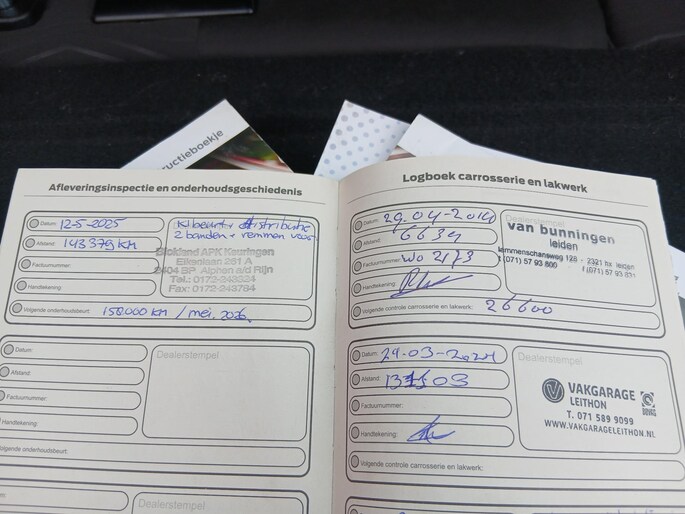 ructieboekje
Afleveringsinspectie en onderhoudsgeschiedenis
Datum: 12-5-2025
Afstand: 143379 KM
Factuurnummer:
Handtekening:
Volgende onderhoudsbeurt: 150.000 KM / mei, 2026.
Kl beurt + distributie
2 banden + remmen voor
Stokland APK Keuringen
Eikenlaan 261 A
2404 BP Alphen a/d Rijn
Tel.: 0172-
Fax: 0172-243784
Datum:
Afstand:
Factuurnummer:
Handtekening:
Volgende onderhoudsbeurt:
Dealerstempel
Dealerstempel
Logboek carrosserie en lakwerk
Datum: 29-04-2014
Afstand: 6639
Factuurnummer: Wo 2173
Handtekening:
Volgende controle carrosserie en lakwerk: 26600
Dealerstempel
van bunningen
leiden
lammenschansweg 128 - 2321 hx leiden
t (071) 57 93 800 f (071) 57 93 831
Datum: 24-03-2021
Afstand:
Factuurnummer:
Handtekening:
Volgende controle carrosserie en lakwerk:
Dealerstempel
VAKGARAGE
LEITHON
T. 071 589 9099
WWW.VAKGARAGELEITHON.NL
BOVAG
Datum:
Dealerstempel